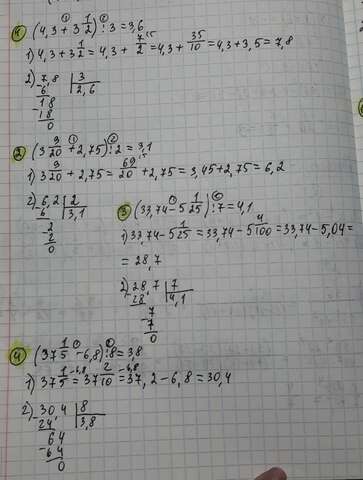 1 (4,3 + 3 1/2) : 3 = 3,6
1) 4,3 + 3 1/2 = 4,3 + 7/2 = 4,3 + 35/10 = 4,3 + 3,5 = 7,8
2) 7,8 | 3
6 | 2,6
18
18
0
2 (3 9/20 + 2,75) : 2 = 3,1
1) 3 9/20 + 2,75 = 69/20 + 2,75 = 3,45 + 2,75 = 6,2
2) 6,2 | 2
6 | 3,1
2
2
0
3 (33,74 - 5 1/25) : 7 = 4,1
1) 33,74 - 5 1/25 = 33,74 - 5 4/100 = 33,74 - 5,04 =
= 28,7
2) 28,7 | 7
28 | 4,1
7
7
0
4 (37 1/5 - 6,8) : 8 = 3,8
1) 37 1/5 - 6,8 = 37 2/10 - 6,8 = 37,2 - 6,8 = 30,4
2) 30,4 | 8
24 | 3,8
64
64
0